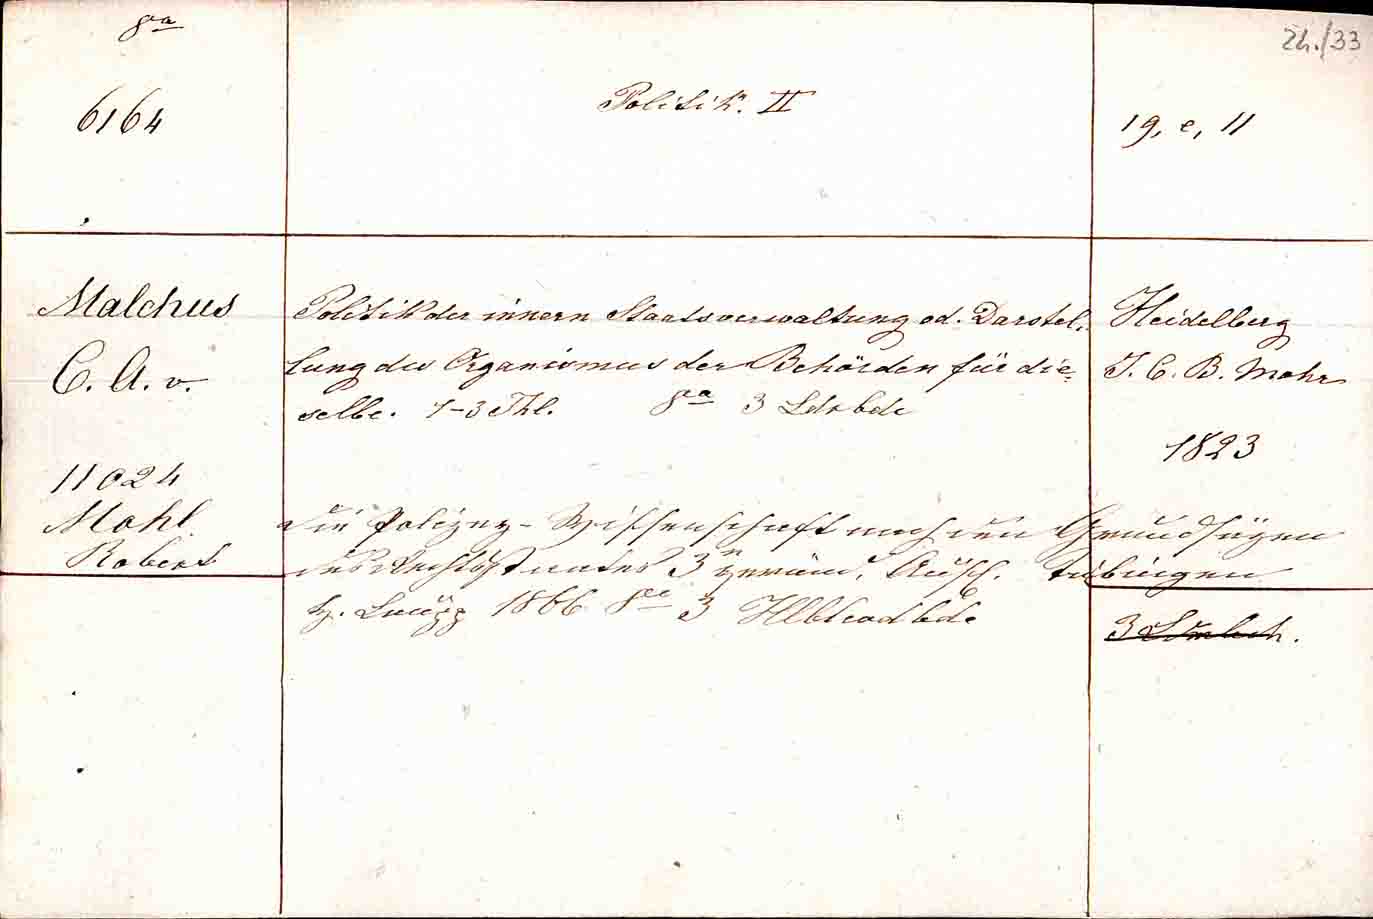 8va
6164
Politik. II
2h./33
19, e, 11
Malchus
C. A. v.
Politik der innern Staatsverwaltung od. Darstel-
lung des Organismus der Behörden für die-
selbe. 1-3 Thl. 8va 3 Ldrbde
Heidelberg
J. C. B. Mohr
1823
11024
Mohl
Robert
Die Polizey-Wissenschaft nach den Grundsätzen
des Rechtsstaates 3n veränd. Aufl. Tübingen
H. Laupp 1866 8va 3 Hlbleadbde